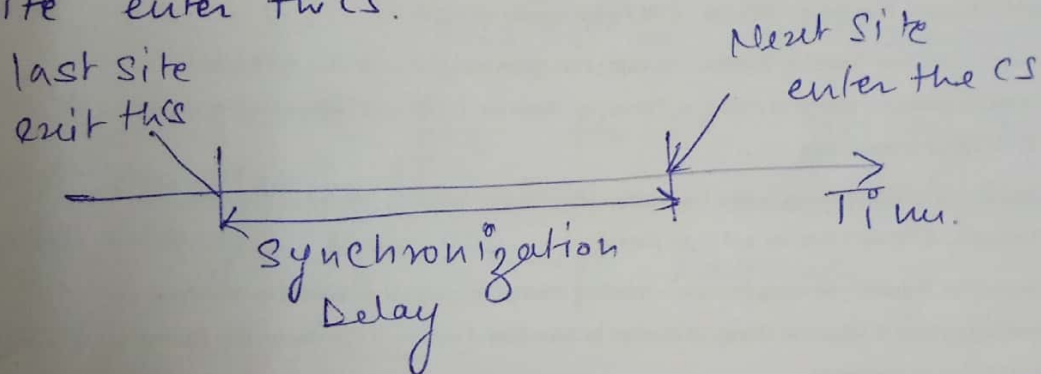 ite enter the CS.
last site
exit the CS
Next Site
enter the CS
Time.
Synchronization
Delay